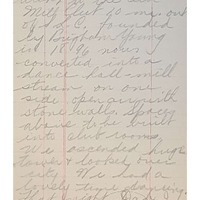 Mill Club is mi. out
of S.L.C. founded
by Brigham Young
in 1896 now
converted into a
dance hall mill
stream on one
side open air with
stone walls. Space
above to be built
into club rooms.
We ascended huge
tower & looked over
city. We had a
lovely time dancing